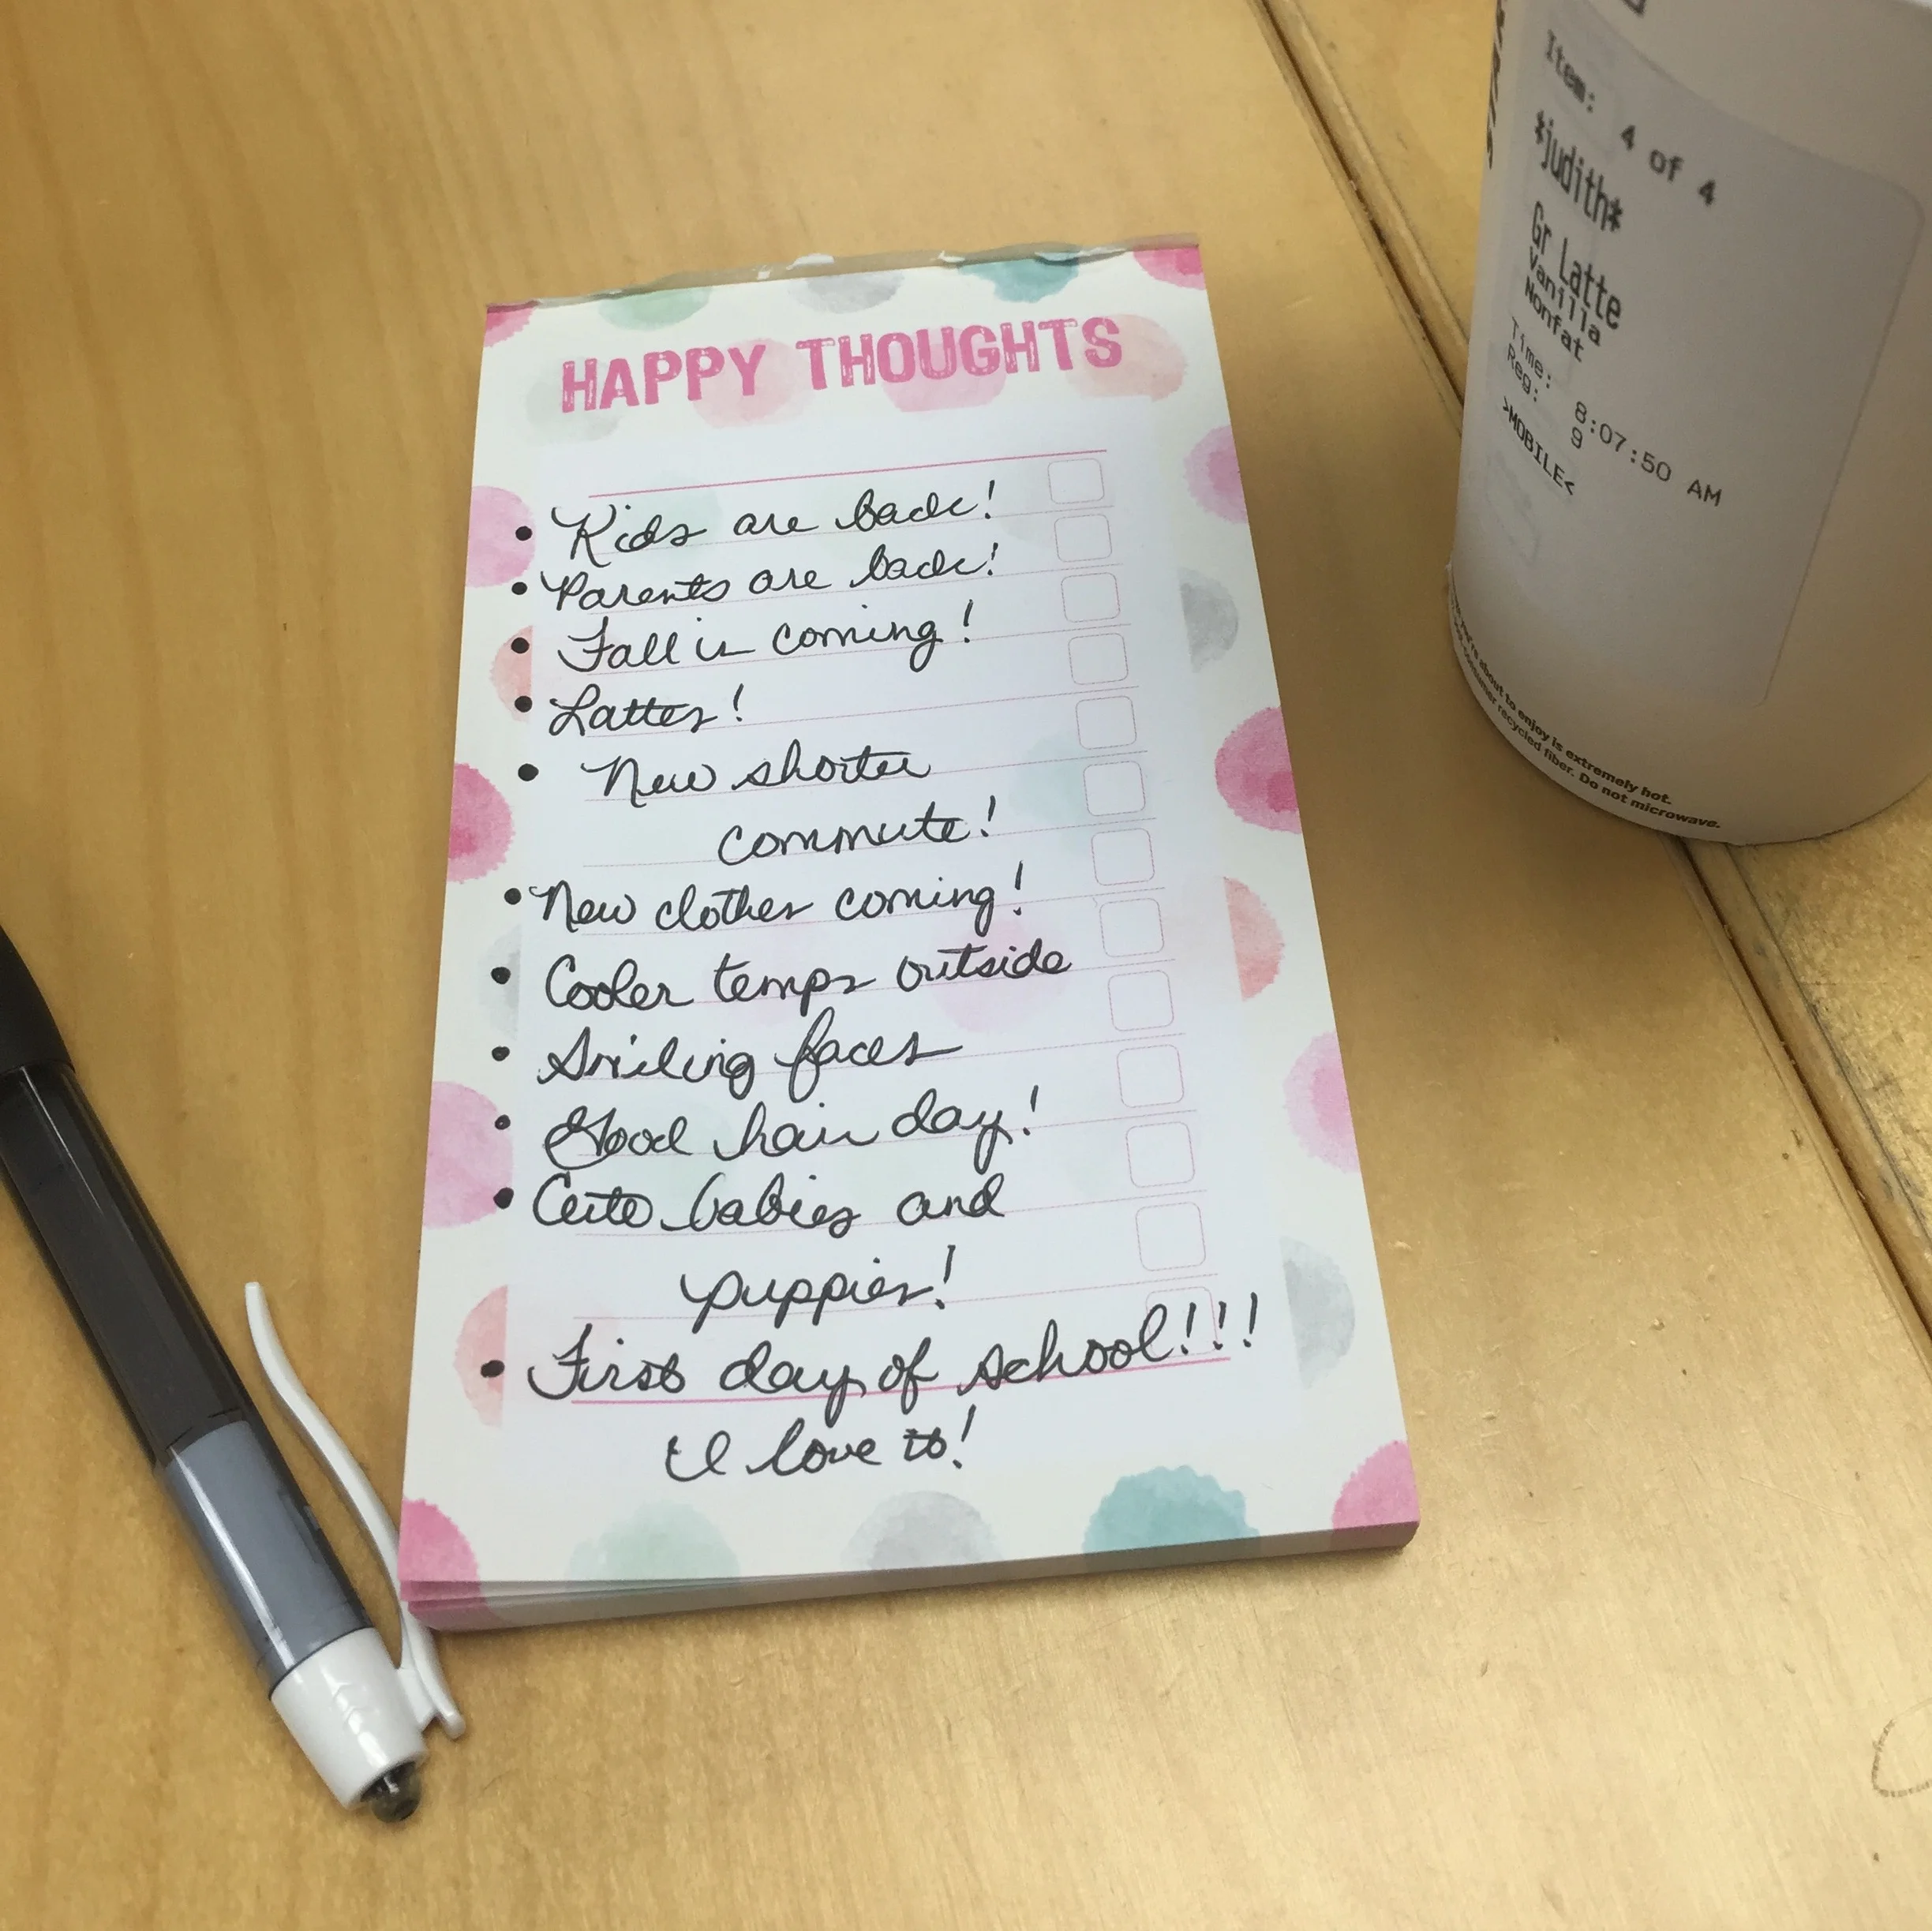 HAPPY THOUGHTS
• Kids are back!
• Parents are back!
• Fall is coming!
• Lattes!
• New shorter
commute!
• New clothes coming!
• Cooler temps outside
• Smiling faces
• Good hair day!
• Cute babies and
puppies!
• First day of school!!!
I love it!
Item: 4 of 4
*judith*
Gr Latte
Vanilla
Nonfat
Time: 8:07:50 AM
Reg: 9
>MOBILE<
you're about to enjoy is extremely hot.
consumer recycled fiber. Do not microwave.